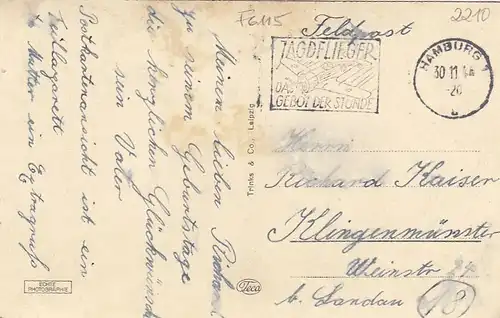 F6115
2210
Feldpost
JAGDFLIEGER
DAS
GEBOT DER STUNDE
HAMBURG 1
30.11.44
Herrn
Richard Kaiser
Klingenmünster
Weinstr 24
b. Landau
18
Meinen lieben Richard
zu seinem Geburtstage
die herzlichen Glückwünsche
sein Vater
Postkartenansicht ist ein
Teillazarett
Mutter ein Extragruß
Trinks & Co., Leipzig
ECHTE
PHOTOGRAPHIE
Teca